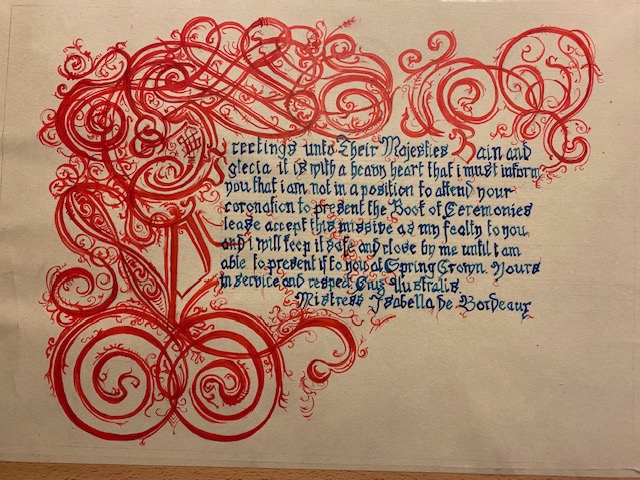 Greetings unto Their Majesties Rain and
glecia it is with a heavy heart that i must inform
you that i am not in a position to attend your
coronation to present the Book of Ceremonies
lease accept this missive as my fealty to you
and i will keep it safe and close by me until i am
able to present it to you at Spring Crown. Yours
in service and respect
Mistress Isabella de Bordeaux